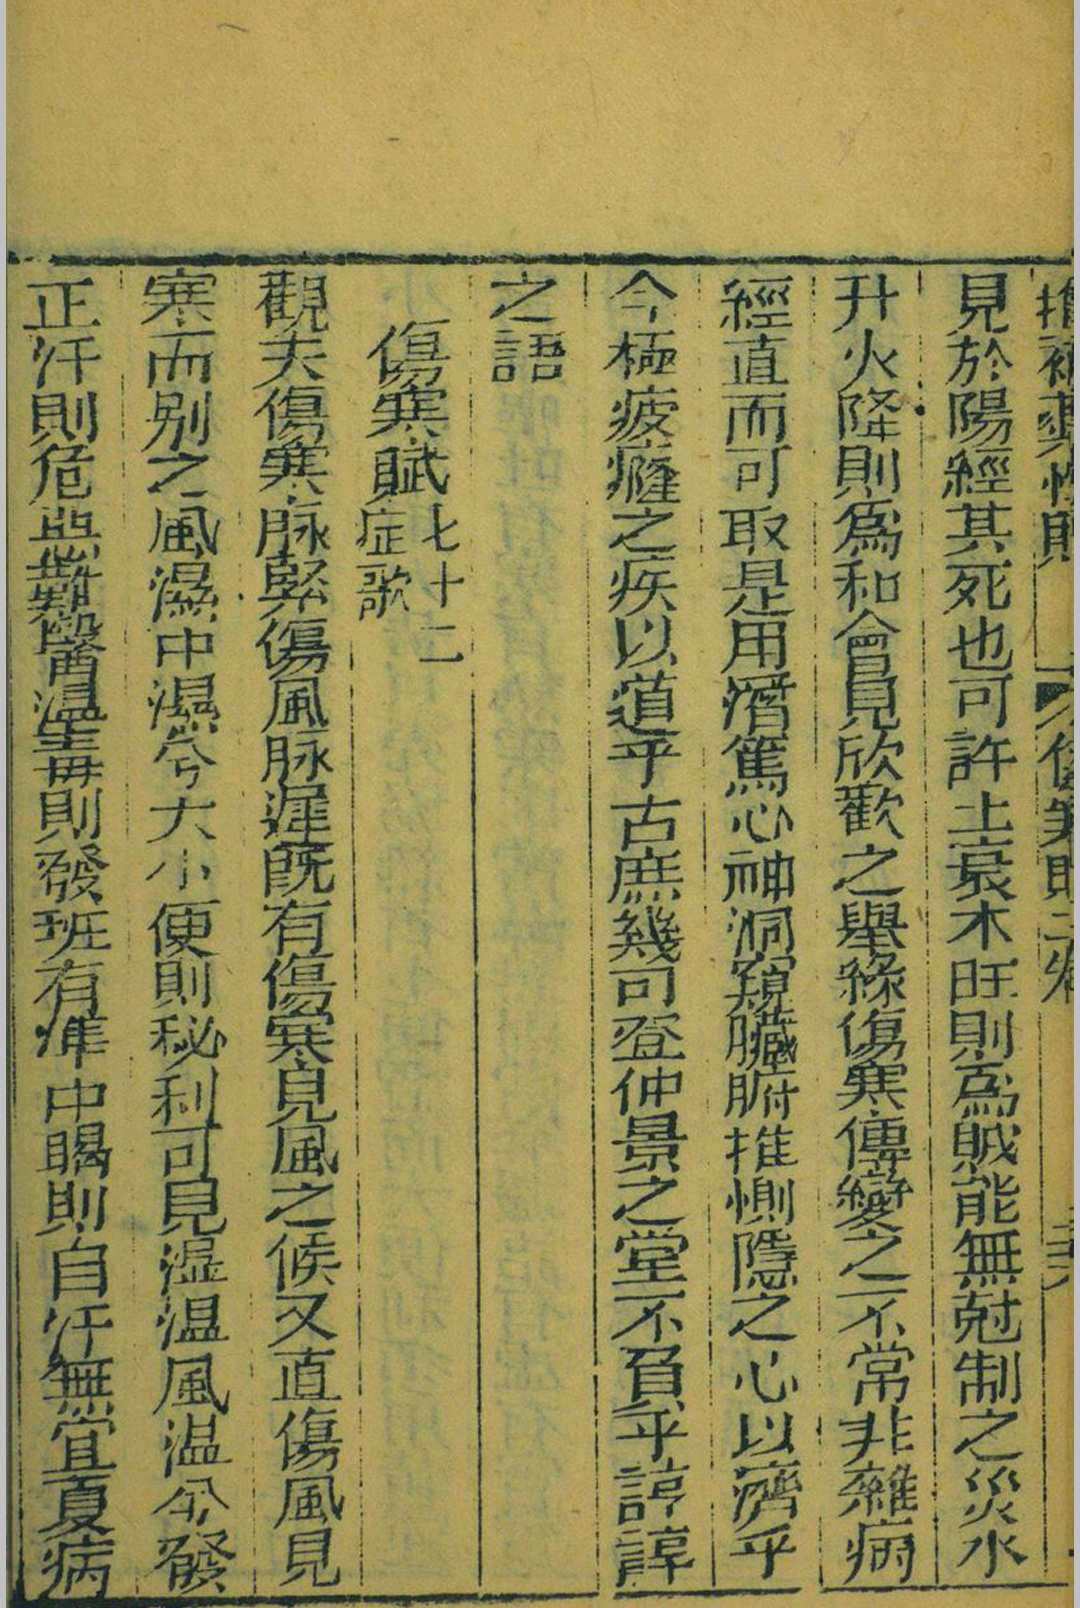 見於陽經其死也可許土衰木旺則為賊能無尅制之災水
升火降則為和會見欣歡之舉緣傷寒傳變之不常非雜病
經直而可取是用潛篤心神洞窺臟腑推惻隱之心以濟乎
今極疲癃之疾以道乎古庶幾可登仲景之堂不負乎諄諄
之語
傷寒賦七十二症歌
觀夫傷寒脉緊傷風脉遲既有傷寒見風之候又直傷風見
寒而别之風濕中濕兮大小便則秘利可見濕温風温兮發
正汗則危亟難醫溫毒則發班有準中暍則自汗無宜夏病